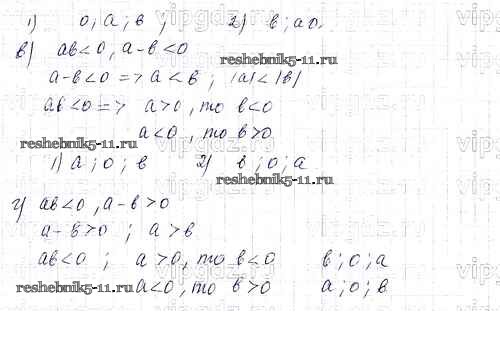 1) 0; а; в; 2) в; а 0.
в) ав<0, а-в<0
reshebnik5-11.ru
а-в<0 => а<в; |а|<|в|
ав<0 => а>0, то в<0
reshebnik5-11.ru
а<0, то в>0
1) а; 0; в 2) в; 0; а
reshebnik5-11.ru
г) ав<0, а-в>0
а-в>0; а>в
ав<0; а>0, то в<0 в; 0; а
reshebnik5-11.ru а<0, то в>0 а; 0; в